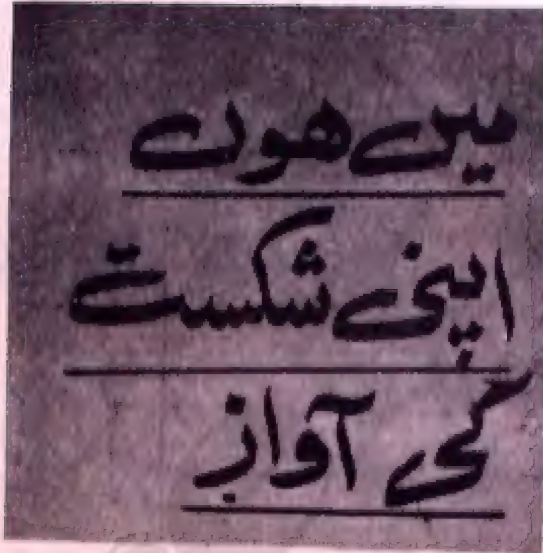 میں ھوں
اپنی شکست
کی آواز